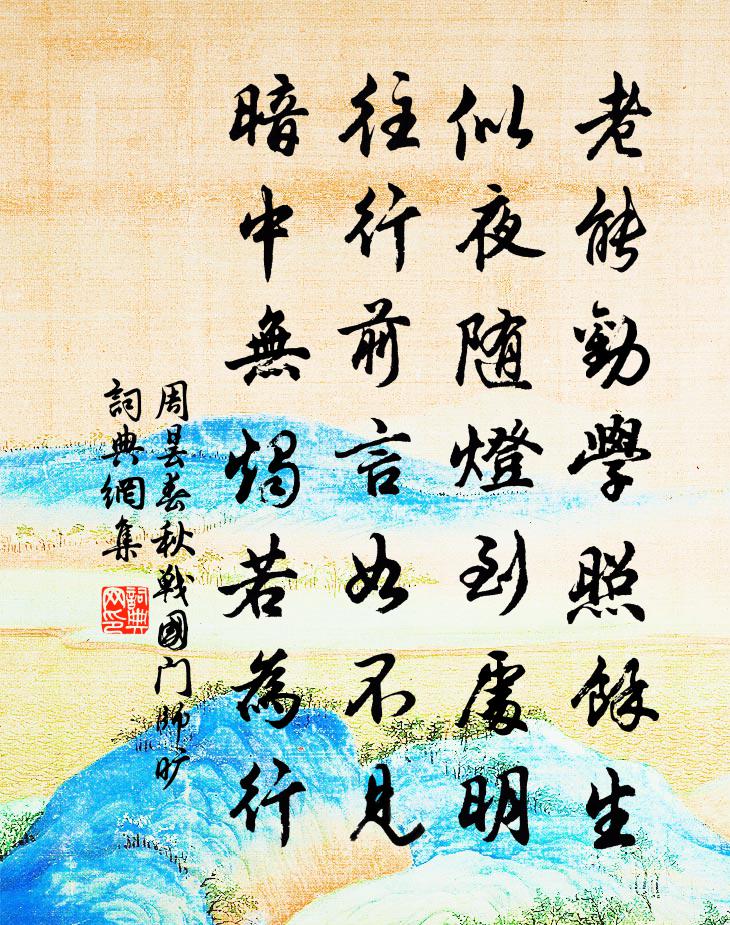 老能勸學照餘生
似夜随燈到處明
往行前言如不見
暗中無燭若為行
周曇春秋戰國门師旷
詞典網集
詞典
网印